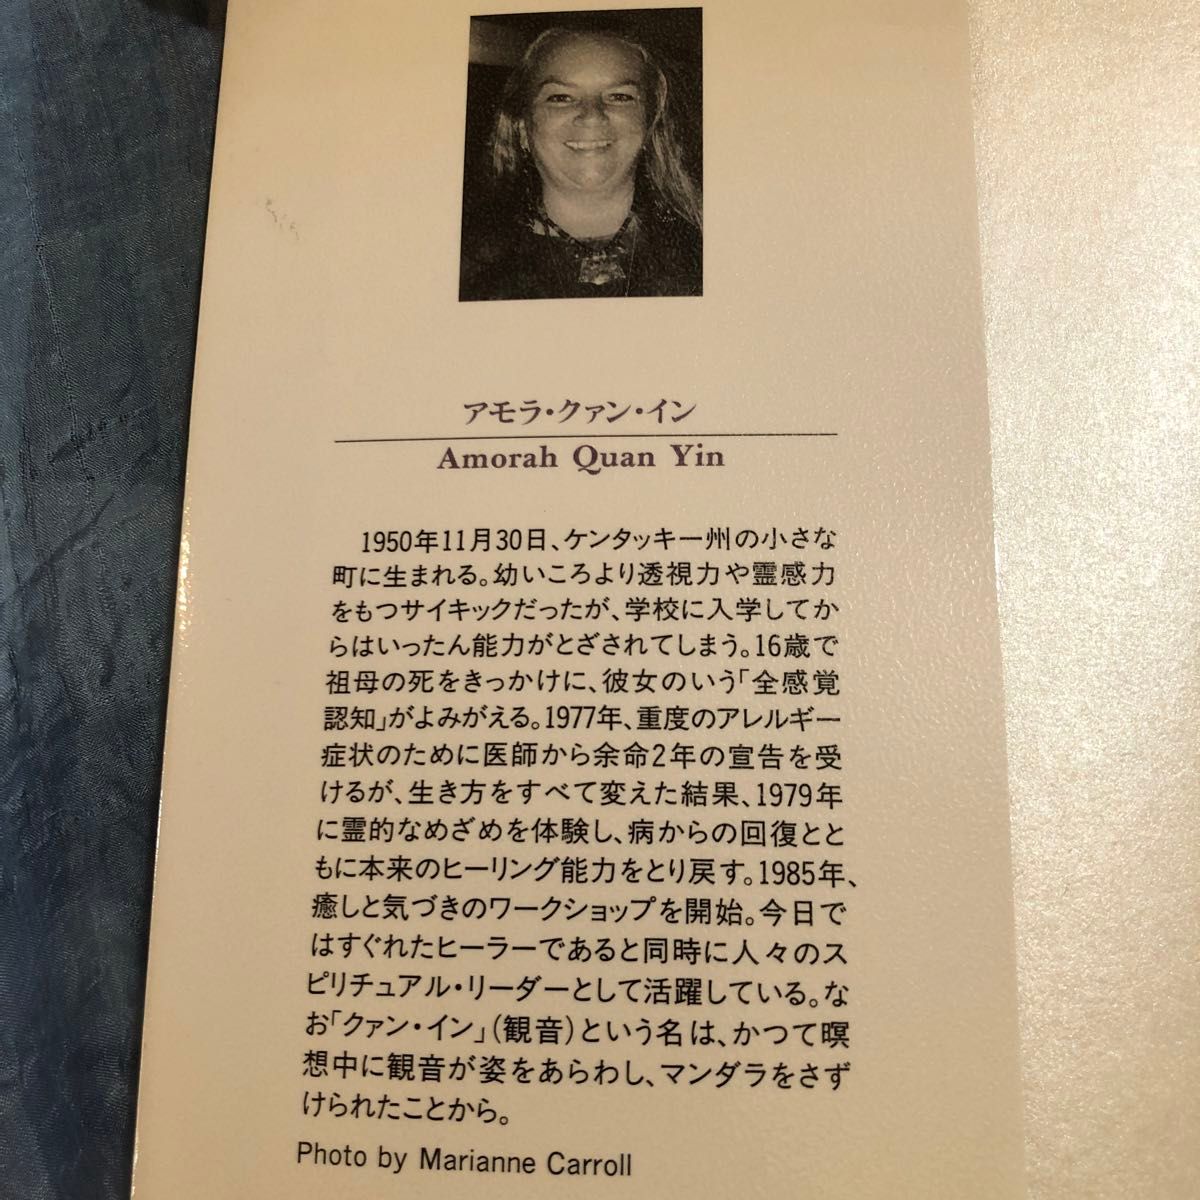 アモラ・クァン・イン
Amorah Quan Yin
1950年11月30日、ケンタッキー州の小さな
町に生まれる。幼いころより透視力や霊感力
をもつサイキックだったが、学校に入学してか
らはいったん能力がとざされてしまう。16歳で
祖母の死をきっかけに、彼女のいう「全感覚
認知」がよみがえる。1977年、重度のアレルギー
症状のために医師から余命2年の宣告を受
けるが、生き方をすべて変えた結果、1979年
に霊的なめざめを体験し、病からの回復とと
もに本来のヒーリング能力をとり戻す。1985年、
癒しと気づきのワークショップを開始。今日で
はすぐれたヒーラーであると同時に人々のス
ピリチュアル・リーダーとして活躍している。な
お「クァン・イン」(観音)という名は、かつて瞑
想中に観音が姿をあらわし、マンダラをさず
けられたことから。
Photo by Marianne Carroll